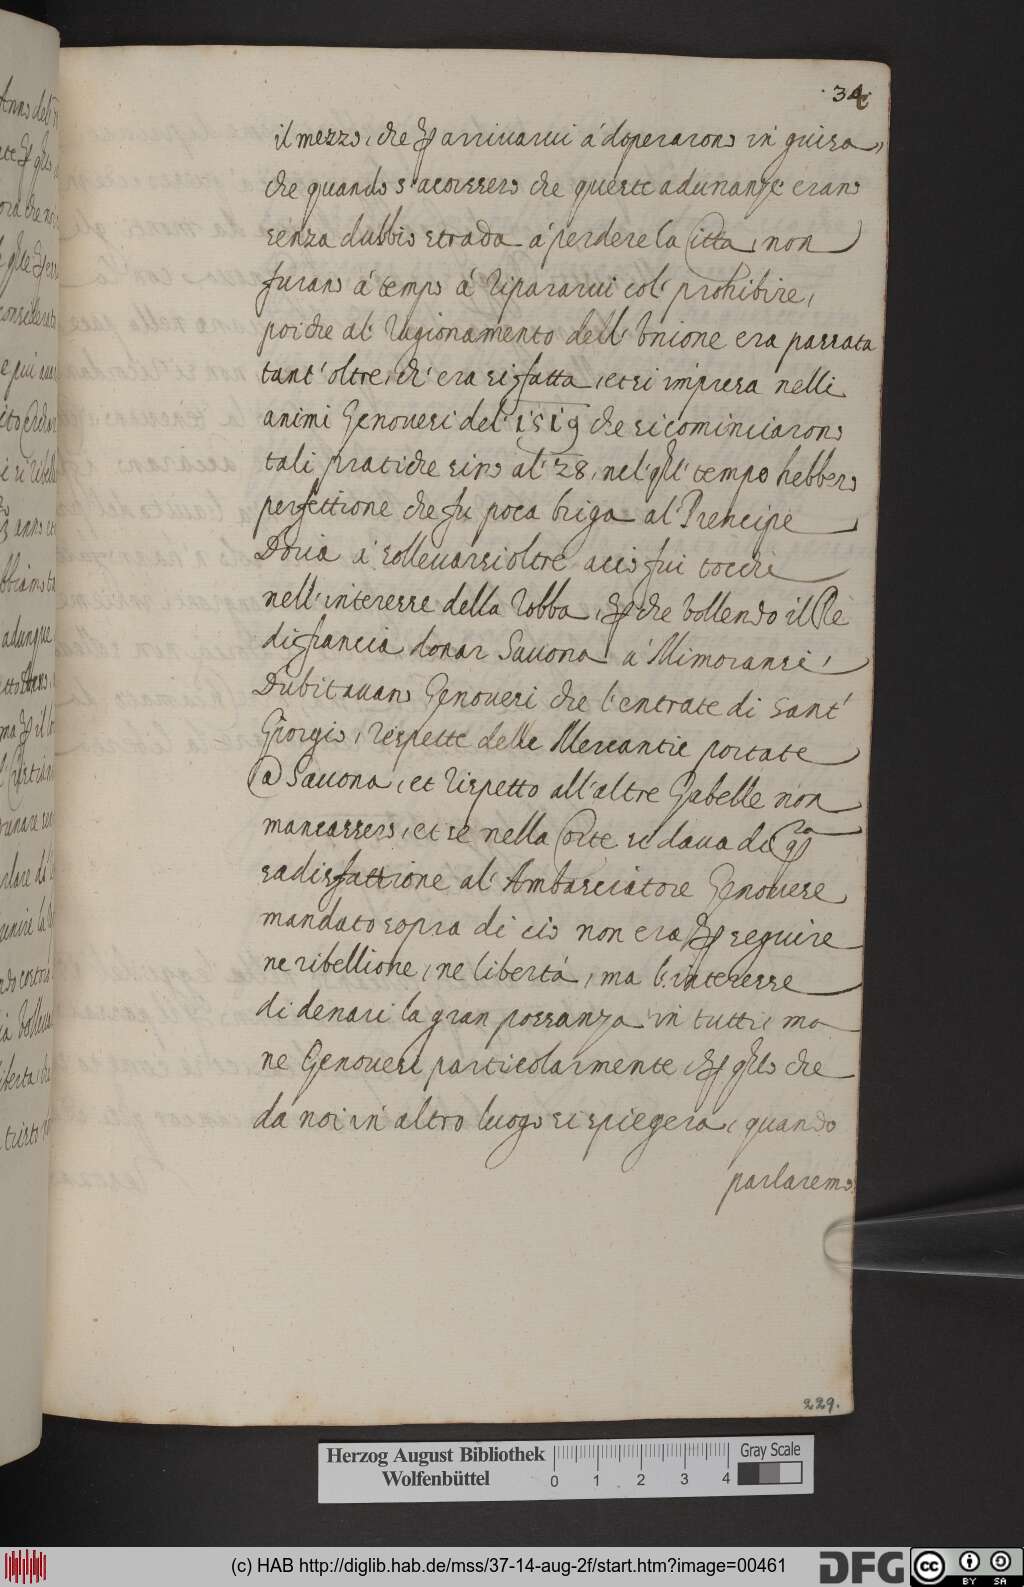 34
il mezzo, che ꝑ arrivarvi á doperarono in guisa,
che quando s'acorssero che queste adunanze erano
senza dubbio strada á perdere la Citta, non
furano á tempo á ripararvi col' prohibire,
poiche al' ragionamento dell' Unione era passata
tant' oltre, ch' era si fatta, et si impresa nelli
animi Genovesi del' 1519 che si cominciarono
tali pratiche sino al' 28, nel' qƚl' tempo hebbero
perfettione che fu poca briga al' Prencipe
Doria á sollevarsi oltre acio fui tocchi
nell' interesse della robba, ꝑche vollendo il Rè
di francia donar Savona á Mimoransi,
Dubitavano Genovesi che l'entrate di Sant'
Giorgio, rispette delle Mercantie portate
a Savona, et rispetto all'altre Gabelle non
mancassero, et se nella Corte si dava di
sadisfattione al' Ambasciatore Genovese
mandato sopra di cio non era ꝑ seguire
ne ribellione, ne libertá, ma l'interesse
di denari la gran possanza in tutti, ma
ne Genovesi particolarmente, ꝑ qƚlo che
da noi in altro luogo si spiegera, quando
parlaremo
229.
Anno del
ora che no
considerato
e piu ava
anno
adunque
ma ꝑ il
unire la
libertá, che
Herzog August Bibliothek
Wolfenbüttel
0 1 2 3 4
Gray Scale
(c) HAB http://diglib.hab.de/mss/37-14-aug-2f/start.htm?image=00461
DFG
cc BY SA